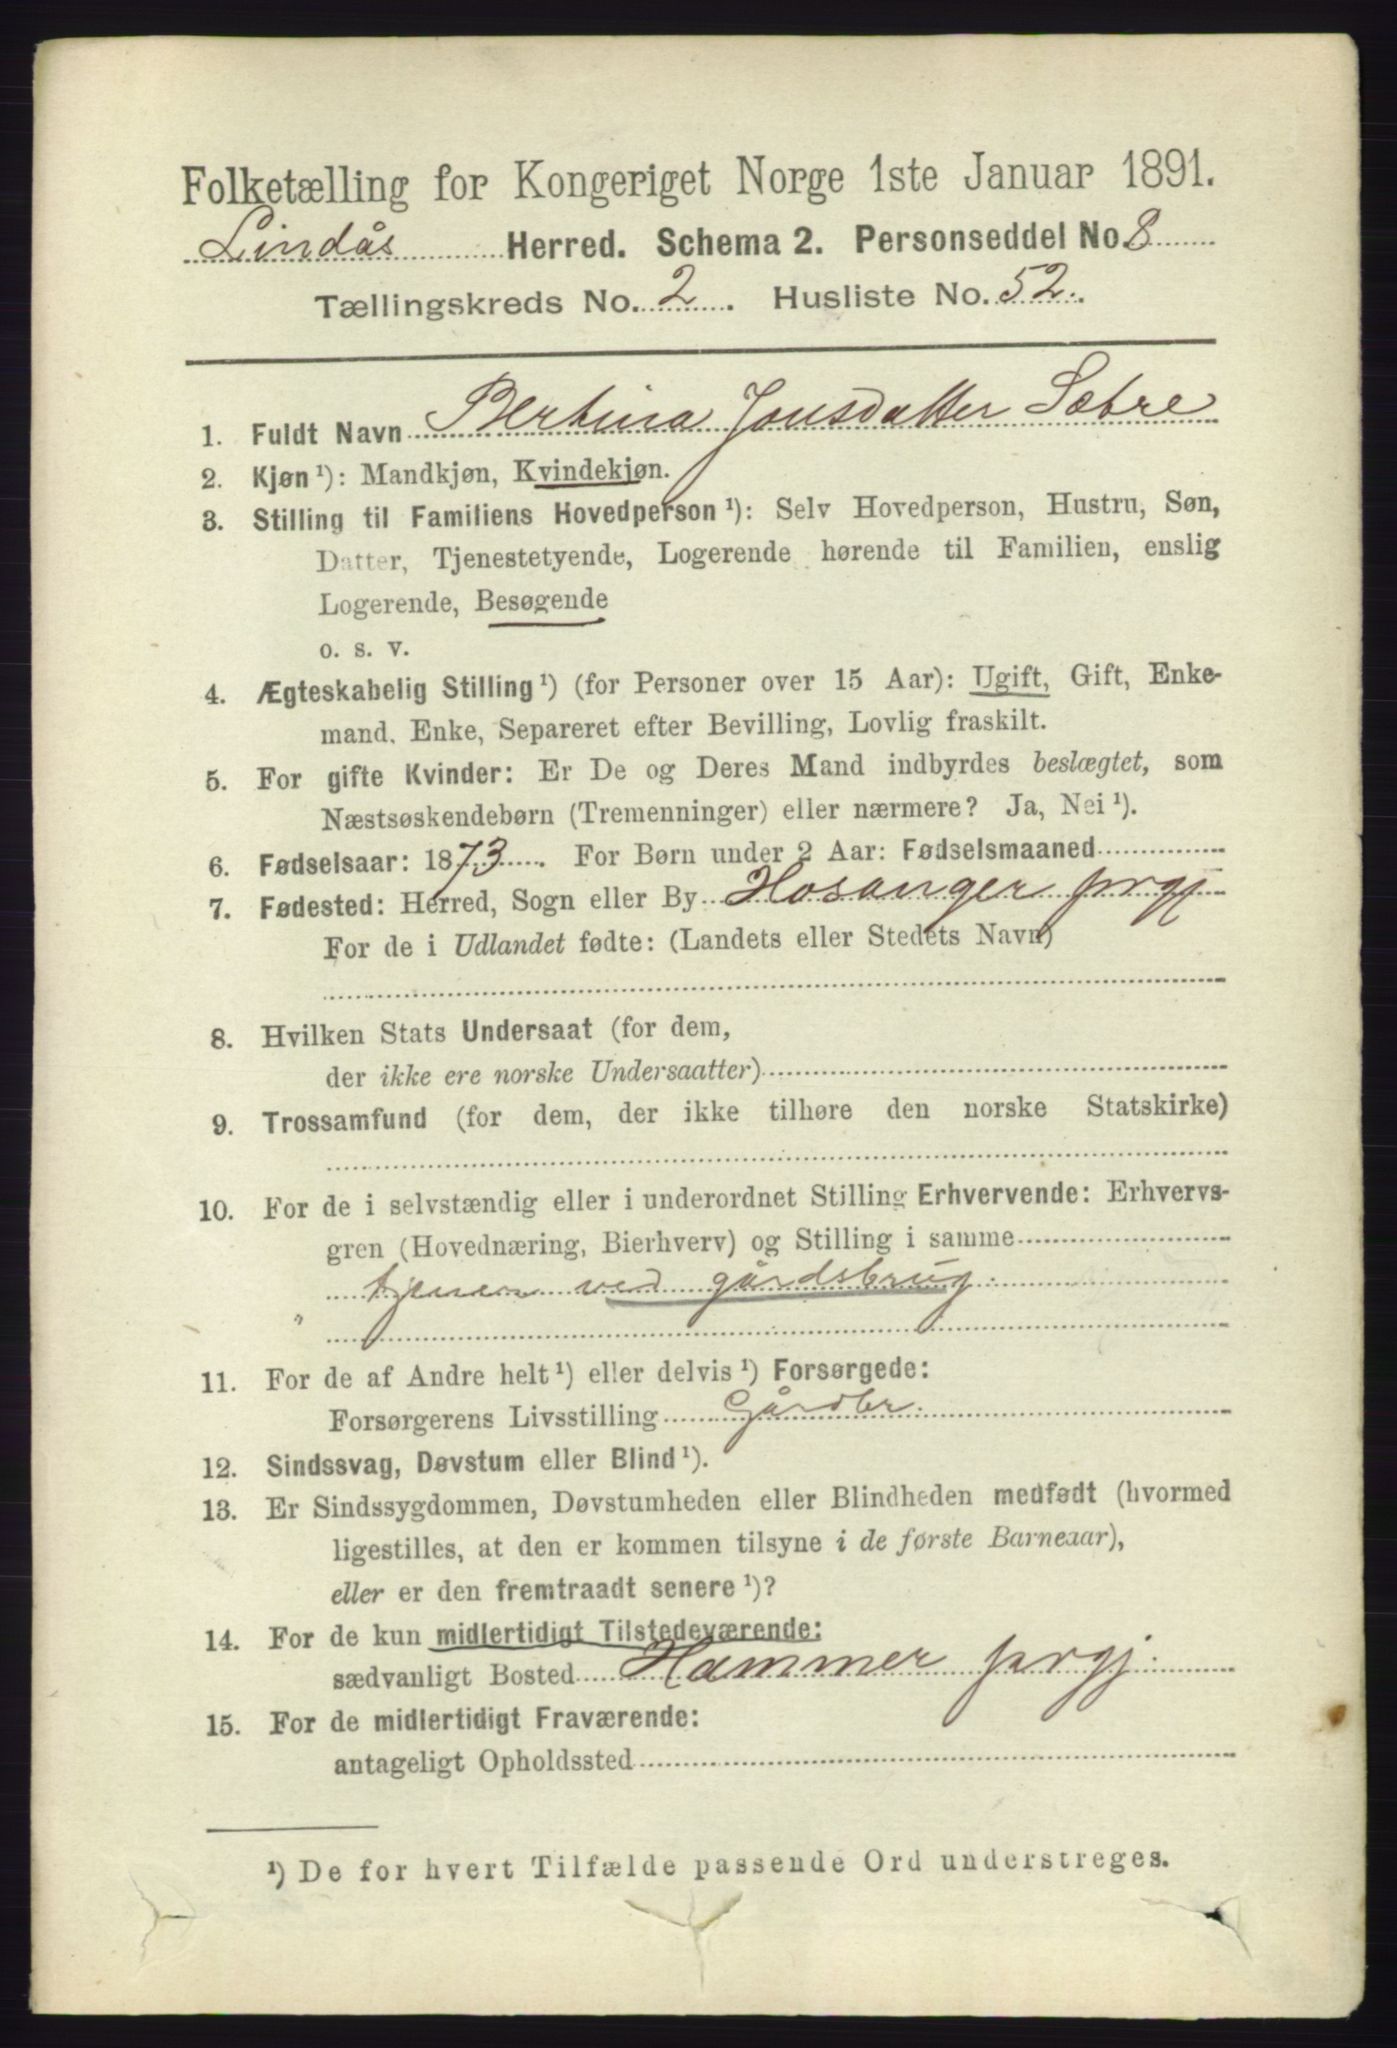 Folketælling for Kongeriget Norge 1ste Januar 1891.
Lindås Herred. Schema 2. Personseddel No. 8
Tællingskreds No. 2. Husliste No. 52.
1. Fuldt Navn Bertina Jonsdatter Sæbre
2. Kjøn ¹): Mandkjøn, Kvindekjøn.
3. Stilling til Familiens Hovedperson ¹): Selv Hovedperson, Hustru, Søn,
Datter, Tjenestetyende, Logerende hørende til Familien, enslig
Logerende, Besøgende
o. s. v.
4. Ægteskabelig Stilling ¹) (for Personer over 15 Aar): Ugift, Gift, Enke-
mand, Enke, Separeret efter Bevilling, Lovlig fraskilt.
5. For gifte Kvinder: Er De og Deres Mand indbyrdes beslægtet, som
Næstsøskendebørn (Tremenninger) eller nærmere? Ja, Nei ¹).
6. Fødselsaar: 1873. For Børn under 2 Aar: Fødselsmaaned
7. Fødested: Herred, Sogn eller By Hosanger prgj
For de i Udlandet fødte: (Landets eller Stedets Navn)
8. Hvilken Stats Undersaat (for dem,
der ikke ere norske Undersaatter)
9. Trossamfund (for dem, der ikke tilhøre den norske Statskirke)
10. For de i selvstændig eller i underordnet Stilling Erhvervende: Erhvervs-
gren (Hovednæring, Bierhverv) og Stilling i samme
tjener ved gårdsbrug.
"
11. For de af Andre helt ¹) eller delvis ¹) Forsørgede:
Forsørgerens Livsstilling Gårdbr.
12. Sindssvag, Døvstum eller Blind ¹).
13. Er Sindssygdommen, Døvstumheden eller Blindheden medfødt (hvormed
ligestilles, at den er kommen tilsyne i de første Barneaar),
eller er den fremtraadt senere ¹)?
14. For de kun midlertidigt Tilstedeværende:
sædvanligt Bosted Hammer prgj.
15. For de midlertidigt Fraværende:
antageligt Opholdssted
¹) De for hvert Tilfælde passende Ord understreges.